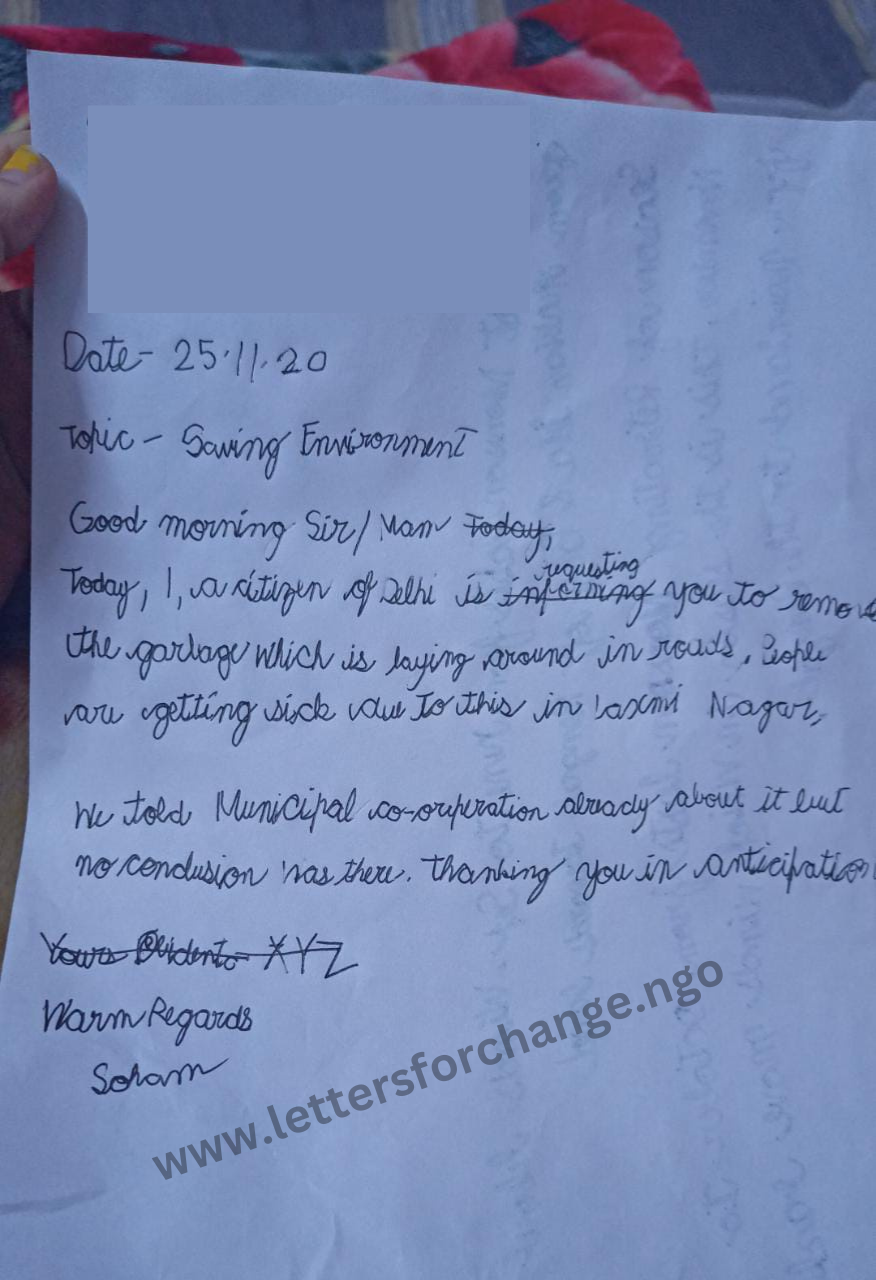 Date- 25.11.20
Topic - Saving Environment
Good morning Sir/Mam Today,
requesting
Today, I, a citizen of Delhi is informing you to remove
the garbage which is laying around in roads. People
are getting sick due to this in Laxmi Nagar,
We told Municipal co-orperation already about it but
no conclusion was there. Thanking you in anticipation
Yours XYZ
Warm Regards
Soham
www.lettersforchange.ngo